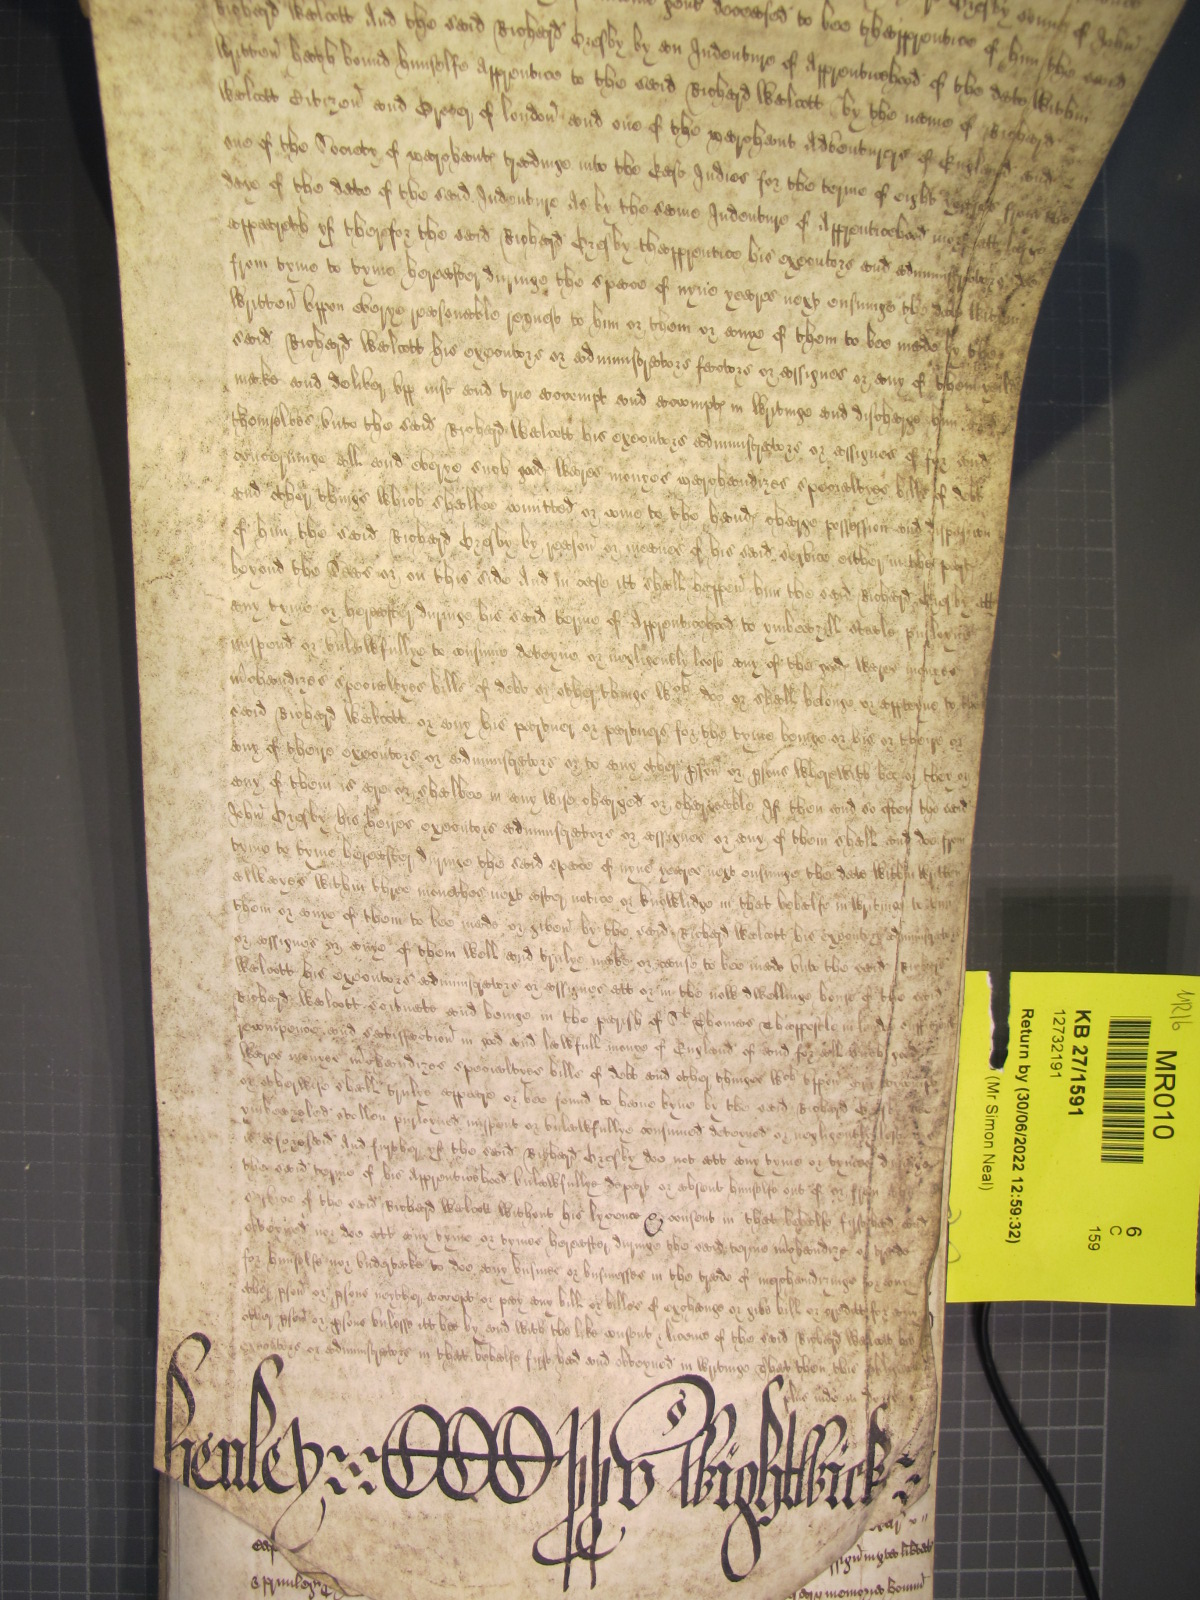 gent deceased to bee thapprentice of him the said
Richard Walcott And the said Richard Cresby by an Indenture of Apprenticehood of the date within
written hath bound himselfe Apprentice to the said Richard Walcott by the name of Richard
Walcott Citizen and Grocer of london and one of the merchant Adventurers of England and
one of the Society of merchants tradinge into the East Indies for the terme of eight yeares from the
daye of the date of the said Indenture As by the same Indenture of Apprenticehood more att large
appeareth yf therefor the said Richard Cresby thapprentice his executors and administrators doe
from tyme to tyme hereafter duringe the space of nyne yeares next ensuinge the date within
written uppon everye reasonable request to him or them or anye of them to bee made by the
said Richard Walcott his executors or administrators factors or assignes or any of them
make and deliver upp iust and true accompt and accompts in writinge and discharge him
themselves unto the said Richard Walcott his executors administrators or assignes of for and
concerninge all and everye such goods wares moneys merchandizes specialtyes bills of debt
and other things which shalbee comitted or come to the hands charge possession and disposicon
of him the said Richard Cresby by reason or meanes of his said service either in the parts
beyond the Seas or on this side And in case itt shall happen him the said Richard Cresby att
any tyme or hereafter duringe his said terme of Apprenticehood to ymbeazill steale purloyne
mispend or unlawfullye to consume detayne or negligently loose any of the goods wares moneys
mchandizes specialtyes bills of debt or other things wch doe or shall belonge or apptayne to the
said Richard Walcott or any his partner or partners for the tyme beinge or his or theire or
any of theire executors or administrators or to any other pson or psons wherewith hee or they or
any of them is are or shalbee in any wise charged or chargeable If then and so often the said
John Cresby his heires executors administrators or assignes or any of them shall and doe from
tyme to tyme hereafter duringe the said space of nyne yeares next ensuinge the date within written
allwayes within three monethes next after notice or knowlidge in that behalfe in writinge to
them or anye of them to bee made or given by the said Richard Walcott his executors administrators
or assignes or anye of them well and trulye make or cause to bee made unto the said Richard
Walcott his executors administrators or assignes att or in the now dwellinge house of the said
Richard Walcott scituate and beinge in the parish of St Thomas Thappostle in london
recompence and satisfaction in good and lawfull money of England of and for all such goods
wares moneys mchandizes specialtyes bills of debt and other things wch uppon
or otherwise shall trulye appeare or bee found to bee
ymbeazled stollen purloyned mispent or unlawfullye consumed detayned or negligentlye lost
as aforesaid And further if the said Richard Cresby doe not att any tyme or tymes duringe
the said terme of his Apprenticehood unlawfullye depart or absent himselfe out of or from
service of the said Richard Walcott without his lycence & consent in that behalfe first had and
obteyned nor doe att any tyme or tymes hereafter duringe the said terme mchandize or trade
for himselfe nor undertake to doe any busines or businesses in the trade of merchandizinge for any
other pson or psons neyther accept or pay any bill or billes of exchange or give bill or for any
other pson or psons unlesse itt bee by and with the like consent & licence of the said Richard Walcott his
executors or administrators in that behalfe first had and obteyned in writinge That then this
plus inde in dorso
henley Wightwick
MR010
6
C
159
KB 27/1591
12732191
Return by (30/06/2022 12:59:32)
(Mr Simon Neal)
MR16